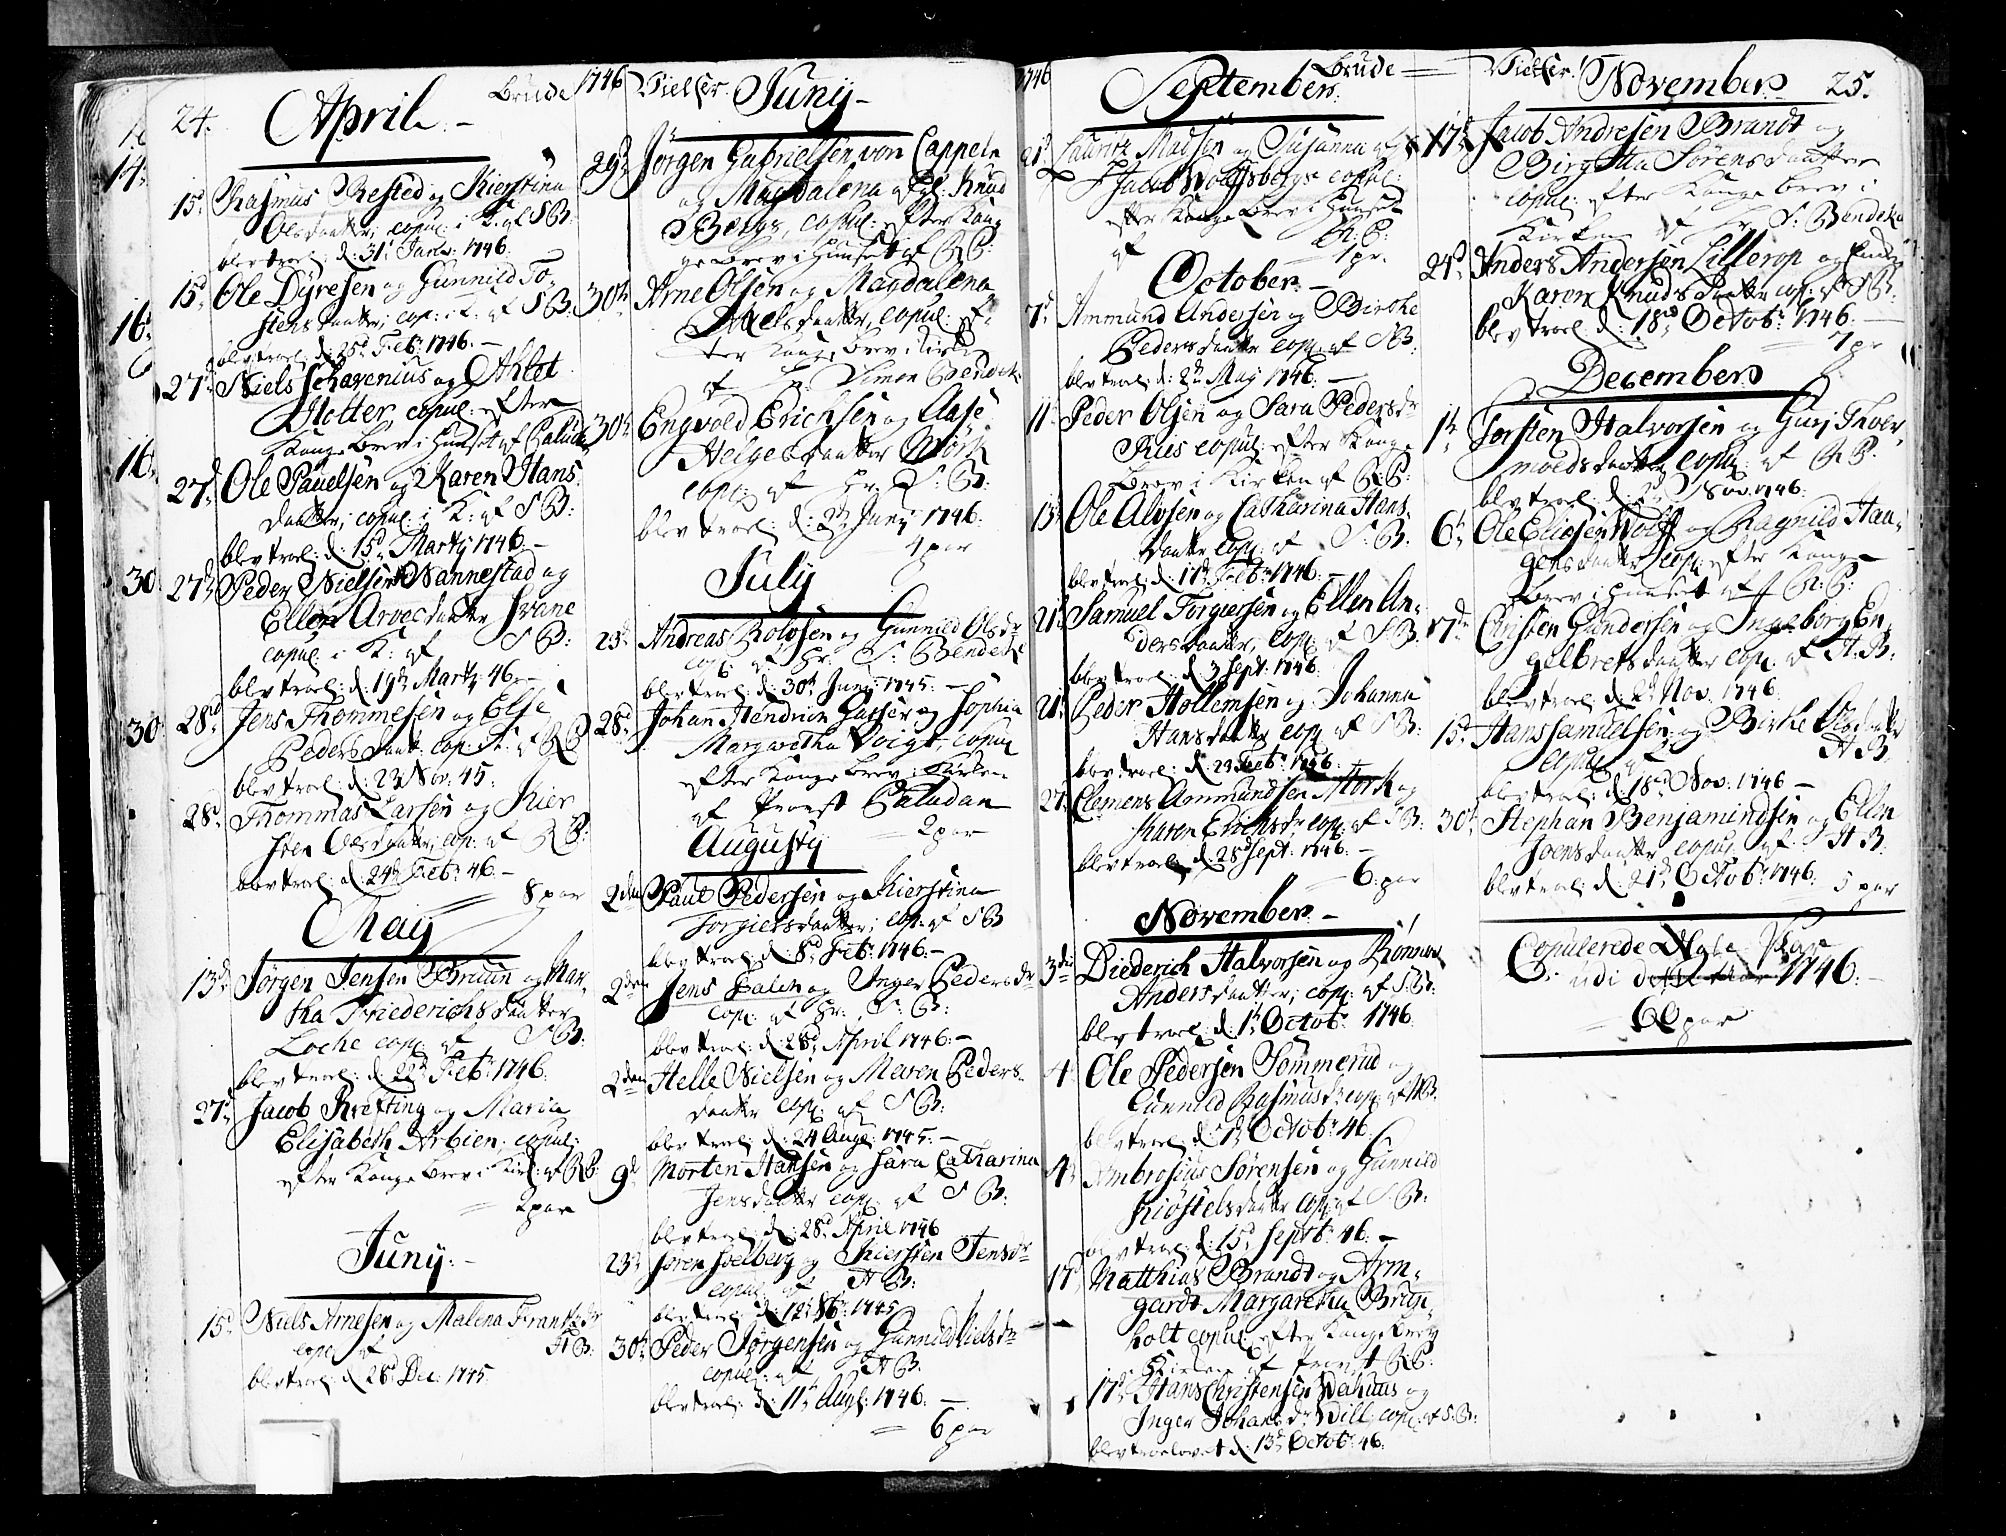 24.
April.
Brude
1746
15d Rasmus Rested og Kierstina
Olsdaatter, copul: i K: af SB:
blev troel: d: 31t Janv: 1746.
15d Ole Dyresen og Gunnild To-
stensdaatter, cop: i K: af SB:
blev troel: d: 25d Febr: 1746.
27d Niels Schavenius og Ahlet
Flotter, copul: efter
Konge Brev i Huuset af Paludan
27d Ole Pauelsen og Karen Hans-
daatter, copul: i K: af SB:
blev troel: d: 15d Marty 1746.
27d Peder Nielsen Nannestad og
Ellen Arvesdaatter Svane
copul: i K: af SB:
blev troel: d: 19d Marty 46.
28d Jens Thommesen og Else
Pedersdaat: cop: i K: af RP
blev troel: d: 23 Nov: 45.
28d Thommas Larsen og Kier-
sten Olsdaatter, cop: af RP:
blev troel: d: 24d Febr: 46.
8 par
May
13d Jørgen Jensen Bruun og Mar-
tha Friederichsdaatter
Loche cop: af SB:
blev troel: d: 22d Febr: 1746.
27d Jacob Krefting og Maria
Elisabeth Arbien, copul:
efter Konge Brev i Kirk: af RP:
2 par
Juny.
15d Niels Arnesen og Malena Frantzdr
cop: af HB:
blev troel: d: 28d Dec: 1745.
Vielser.
Juny
29d Jørgen Gabrielsen von Cappeln
og Magdalena Sl: Knud
Bergs, copul: efter Kon-
ge Brev i Huuset af RP:
30te Arne Olsen og Magdalena
Nielsdaatter, copul: ef-
ter Konge Brev i Kirken
af Hr: Simon Bendeke
30te Engvold Erichsen og Aase
Helgesdaatter Mörk
copul: af Hr. S: B:
blev troel: d: 2d Juny 1746.
4 par
July
23d Andreas Rolvsen og Gunnild Olsdr
cop: af Hr: S: Bendeke
blev troel: d: 30te Juny 1745.
28d Johan Hendrich Gasser og Sophia
Margaretha Voigt, copul
efter Konge Brev i Kirken
af Provst Paludan
2 par
Augusty
2den Paul Pedersen og Kierstina
Torgiersdaatter, cop: af SB
blev troel: d: 8d Febr: 1746.
2den Jens Palm og Inger Pedersdr
cop: af Hr: S: B:
blev troel: d: 28d April 1746.
2den Helle Nielsen og Maren Peders-
daatter cop: af SB:
blev troel: d: 24 Aug: 1745.
9d Morten Hansen og Sara Catharina
Jensdaatter cop: af SB:
blev troel: d: 28d April 1746
23d Søren Soelberg og Kiersten Jensdr
copul: af HB:
blev troel: d: 12t 8br: 1745
30te Peder Jørgensen og Gunnild Nielsdr
copul: af HB:
blev troel: d: 11te Aug: 1746.
6 par
1746
September.
Brude
21d Lauritz Madsen og Susanna
Jacob Wolffsbergs copul:
efter Konge Brev i Huuset
af R: P:
1 pr.
October.
7d Anmund Andersen og Birthe
Pedersdaatter cop: af SB:
blev troel: d: 2d May 1746.
11. Peder Olsen og Sara Pedersdr
Riis copul: efter Konge
Brev i Kirken af R: P:
13d Ole Alvsen og Catharina Hans-
daatter cop: af S: B:
blev troel: d: 17d Febr: 1746.
21d Samuel Torgiersen og Ellen An-
dersdaatter, cop: af SB.
blev troel: d: 3 Sept: 1746.
21d Peder Hollemsen og Johanna
Hansdaatter cop af SB:
blev troel: d. 23 Febr: 1746.
27d Clemens Ammundsen Mörk og
Karen Erichsdr cop: af SB:
blev troel: d: 28d Sept: 1746.
6. par
November.
3die Diederich Halvorsen og Rønnov
Andersdaatter, cop: af S.B:
blev troel: d: 1te Octobr: 1746.
4. Ole Pedersen Sommerud og
Gunnild Rasmusdr cop: af HB.
blev troel: d: 1te Octobr: 46.
4de Ambrosius Sørensen og Gunnild
Kiøstelsdaatter cop: af S: B:
blev troel: d. 15d Septbr: 46.
17d Matthias Brandt og Arm-
gardt Margaretha Brun-
holt copul: efter Konge Brev
i Kirken af Provst RP:
17d Hans Christensen Dahuus og
Inger Johansdr Will, cop: af S.B:
blev troelovet d. 13d Octobr: 46.
Vielser.
November
25.
17d Jacob Andresen Brandt og
Birgitta Sørensdaatter
copul: efter Konge Brev i
Kirken af Hr. S: Bendeke
24d Anders Andersen Lillerop og
Karen Knudsdaatter cop: af SB:
blev troel: d: 18d Octobr: 1746.
7 pr
December
1te Torsten Halvorsen og Guri Thoer-
moedsdaatter copul: af RP.
blev troel: d. 2d Nov. 1746.
6te Ole Eliesen Wolff og Ragnild Haa-
gensdaatter cop: efter Konge
Brev i Huuset af R: P:
7de Christen Gundersen og Ingeborg En-
gelbretsdaatter cop: af H: B:
blev troel: d. 2d Nov. 1746.
15d Hans Samuelsen og Birthe
copul: af HB.
blev troel: d: 18d Nov: 1746
30te Stephan Benjamindsen og Ellen
Joensdaatter copul: af HB
blev troel: d: 21d Octobr: 1746.
5 par
Copulerede Ægte Par
udi 1746.
60 par